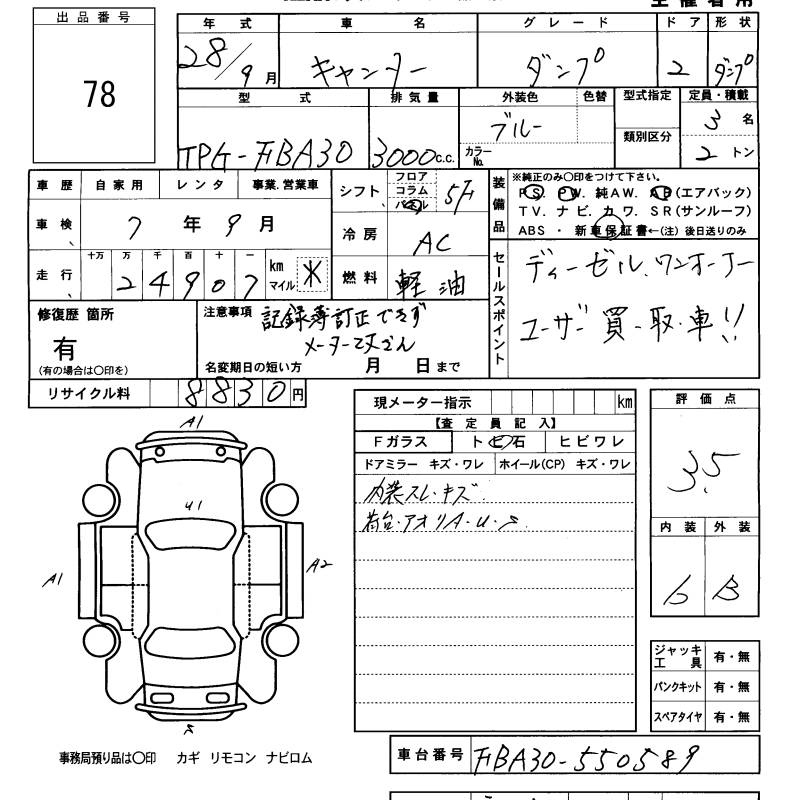 出品番号
78
年式 車名 グレード ドア 形状
28/9月 キャンター ダンプ 2 ダンプ
型式 排気量 外装色 色替 型式指定 定員・積載
TPG-FBA30 3000c.c. ブルー カラーNo. 類別区分 3名 2トン
車歴 自家用 レンタ 事業.営業車
車検 7年9月
走行 十万 万 千 百 十 一
24907 km マイル ※
シフト フロア コラム パネル 5F
冷房 AC
燃料 軽油
装備品 ※純正のみ○印をつけて下さい。
PS. PW. 純AW. AB(エアバック)
TV. ナビ. カワ. SR(サンルーフ)
ABS ・ 新車保証書←(注) 後日送りのみ
セールスポイント
ディーゼル.ワンオーナー
ユーザー買.取.車!!
修復歴 箇所
有
(有の場合は○印を)
注意事項
記録簿訂正できず
メーター
名変期日の短い方 月 日まで
リサイクル料 8830円
現メーター指示 km
【査定員記入】
Fガラス トビ石 ヒビワレ
ドアミラー キズ・ワレ ホイール(CP) キズ・ワレ
内装スレ・キズ
荷台・アオリA・U・S
評価点
3.5
内装 外装
b B
A1
U1
A1
A2
S
ジャッキ工具 有・無
パンクキット 有・無
スペアタイヤ 有・無
事務局預り品は○印 カギ リモコン ナビロム
車台番号 FBA30-550589